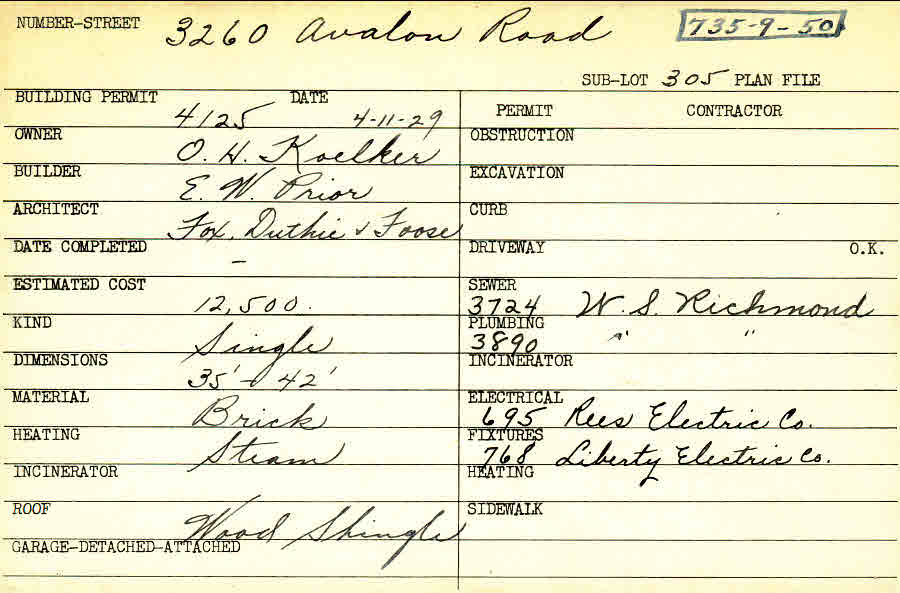 NUMBER-STREET 3260 Avalon Road 735-9-50
SUB-LOT 305 PLAN FILE
BUILDING PERMIT DATE
4125 4-11-29
OWNER
O. H. Koelker
BUILDER
E. W. Prior
ARCHITECT
Fox, Duthie & Foose
DATE COMPLETED
-
ESTIMATED COST
12,500.
KIND
Single
DIMENSIONS
35' - 42'
MATERIAL
Brick
HEATING
Steam
INCINERATOR
ROOF
Wood Shingle
GARAGE-DETACHED-ATTACHED
PERMIT CONTRACTOR
OBSTRUCTION
EXCAVATION
CURB
DRIVEWAY O.K.
SEWER
3724 W. S. Richmond
PLUMBING
3890 " "
INCINERATOR
ELECTRICAL
695 Rees Electric Co.
FIXTURES
768 Liberty Electric Co.
HEATING
SIDEWALK